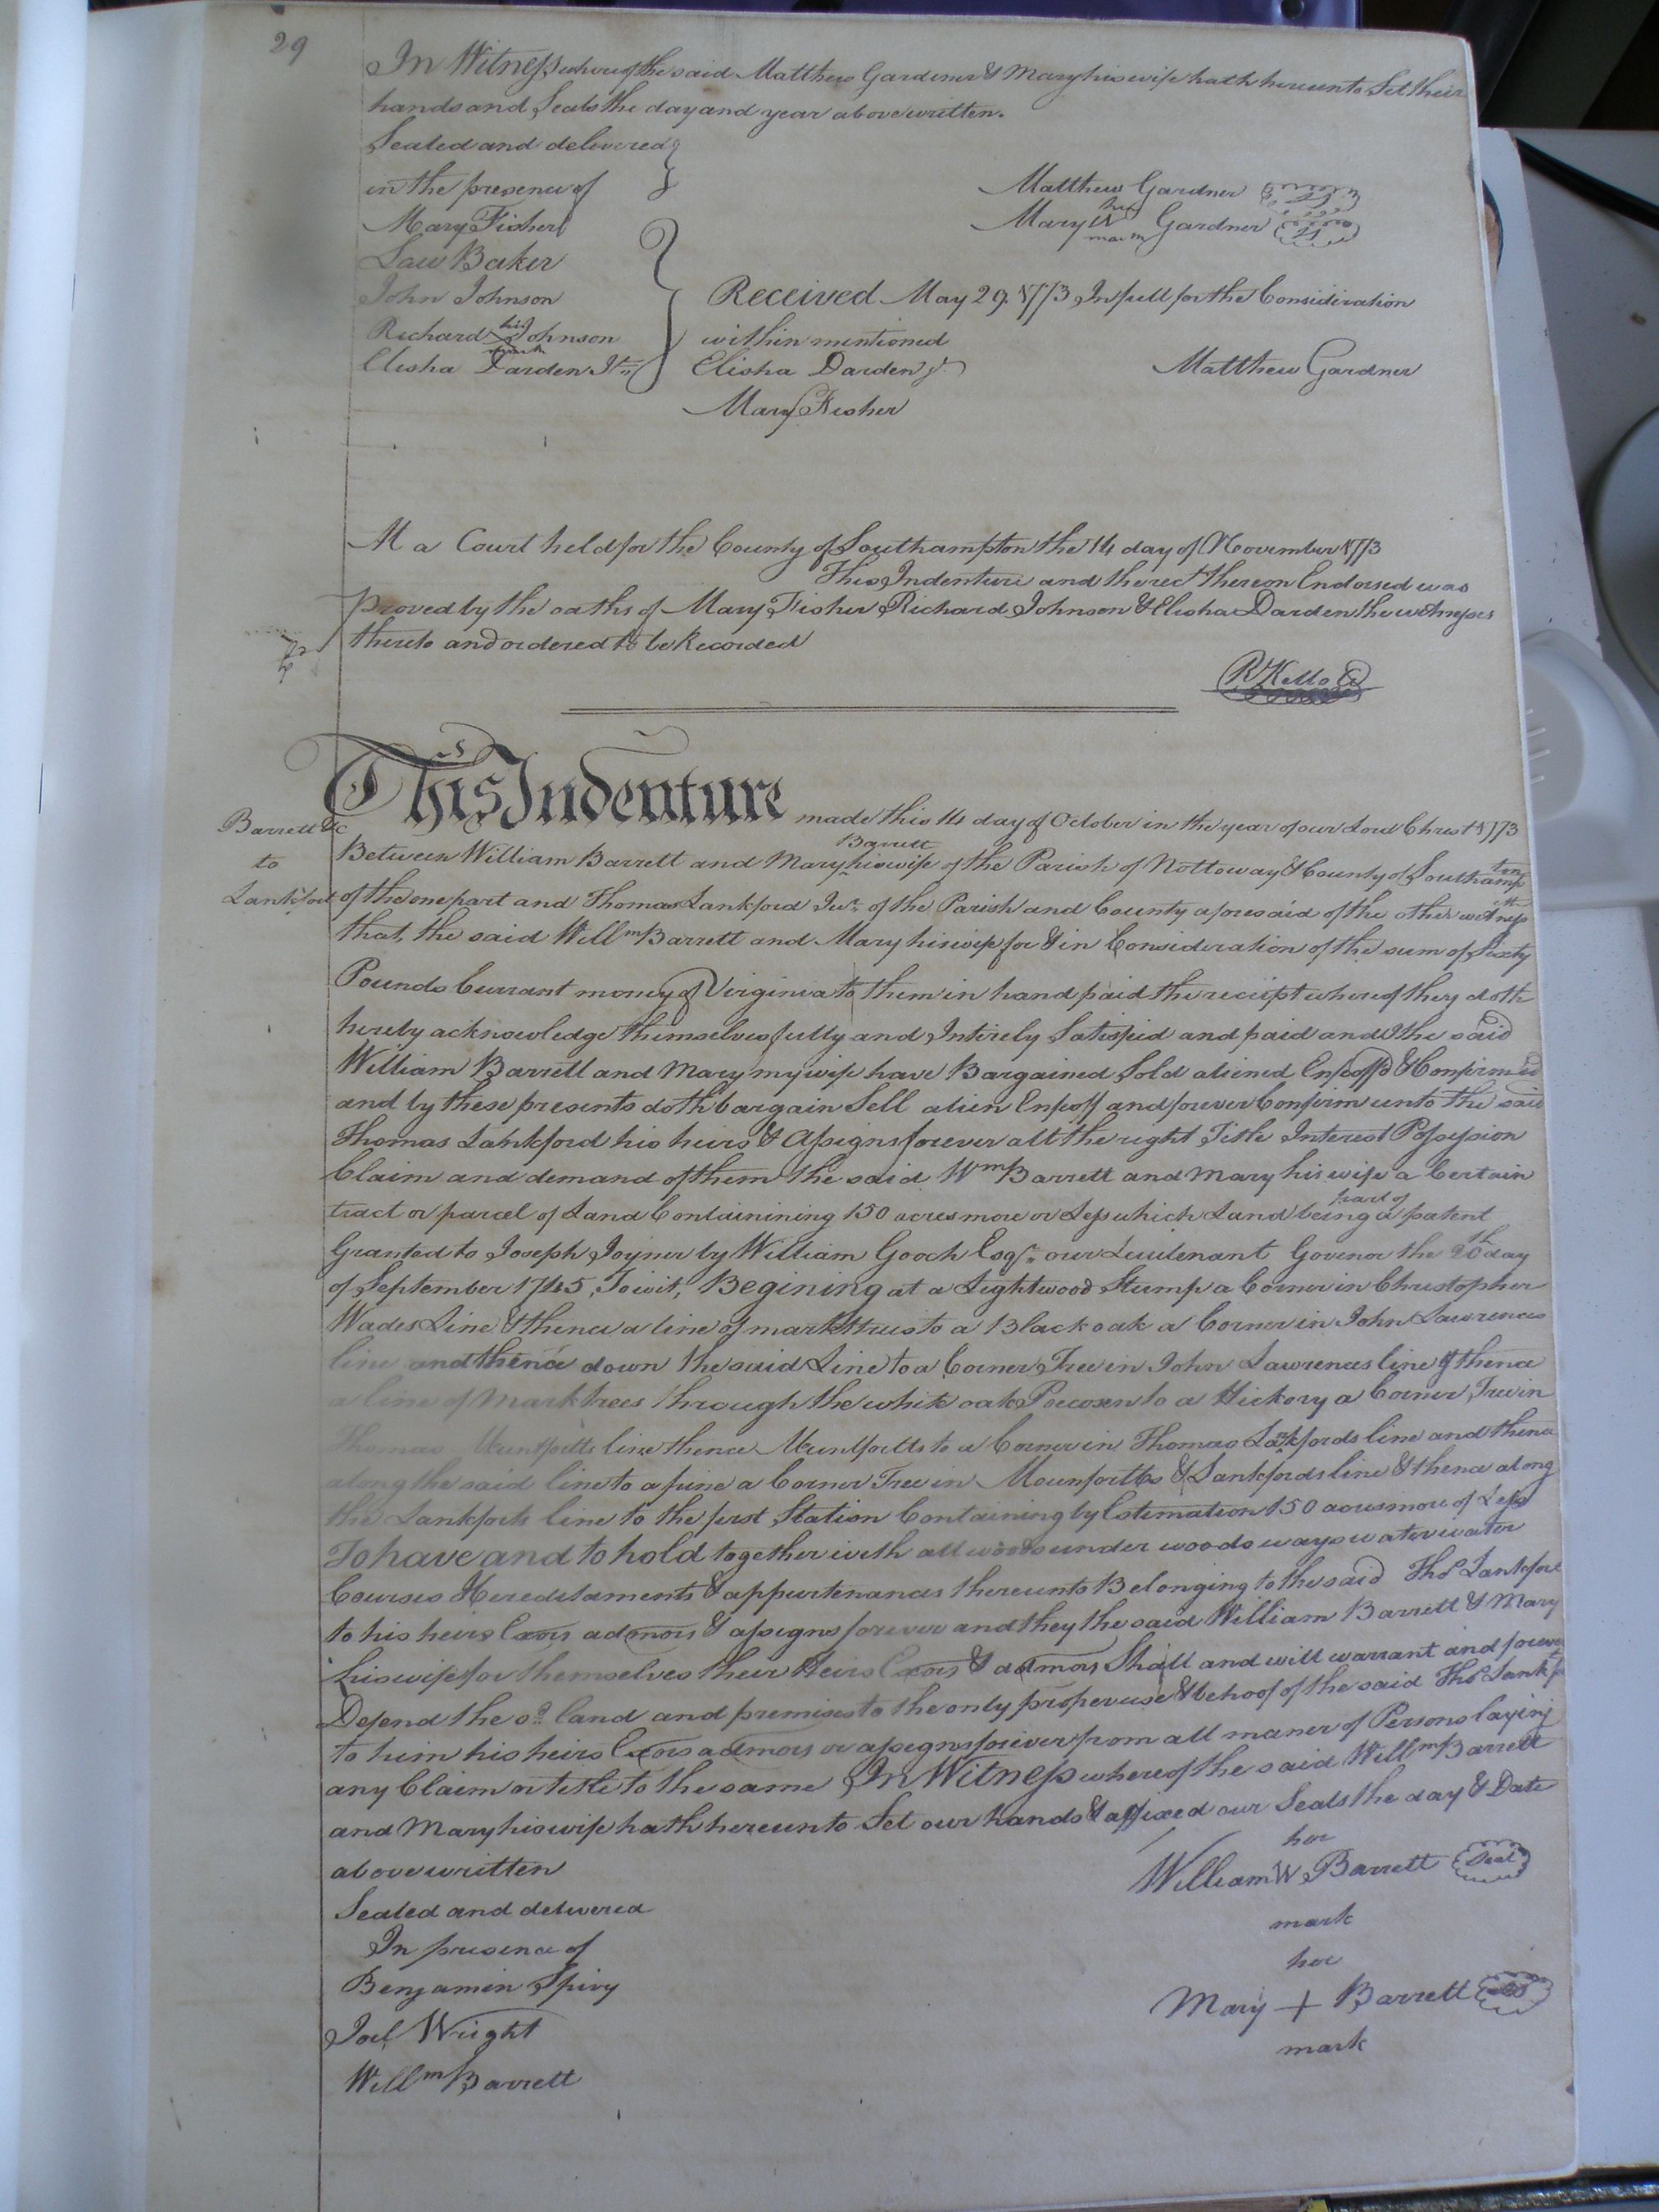 29
In Witness whereof the said Matthew Gardner & Mary his wife hath hereunto Set their
hands and Seals the day and year above written.
Sealed and delivered
in the presence of
Matthew Gardner
her
Mary Gardner
mark
Mary Fisher
Law Baker
John Johnson
his
Richard Johnson
mark
Elisha Darden Jr
Received May 29 1773 In full for the Consideration
within mentioned
Elisha Darden Jr
Matthew Gardner
Mary Fisher
At a Court held for the County of Southampton the 14 day of November 1773
This Indenture and the rect thereon Endorsed was
Proved by the oaths of Mary Fisher Richard Johnson & Elisha Darden the witnesses
thereto and ordered to be Recorded
R Kello
This Indenture made this 14 day of October in the year of our Lord Christ 1773
Barrett &c
to
Lankford
Barrett
Between William Barrett and Mary his wife of the Parish of Nottoway & County of Southampton
of the one part and Thomas Lankford Junr of the Parish and County aforesaid of the other witnesseth
that, the said Willm Barrett and Mary his wife for & in Consideration of the sum of Sixty
Pounds Currant money of Virginia to them in hand paid the reciept whereof they doth
hereby acknowledge themselves fully and Intirely Satisfied and paid and the said
William Barrett and Mary my wife have Bargained Sold aliened Enfeoff'd & Confirmed
and by these presents doth bargain Sell alien Enfeoff and forever Confirm unto the said
Thomas Lankford his heirs & Assigns forever all the right Title Interest Possession
Claim and demand of them the said Wm Barrett and Mary his wife a Certain
part of
tract or parcel of Land Containining 150 acres more or Less which Land being a patent
Granted to Joseph Joyner by William Gooch Esqr our Leuitenant Govenor the 20th day
of September 1745, Towit, Begining at a Lightwood Stump a Corner in Christopher
Wades Line & thence a line of markt trees to a Black oak a Corner in John Lawrences
line and thence down the said Line to a Corner Tree in John Lawrences line & thence
a line of mark trees through the white oak Pocosen to a Hickory a Corner Tree in
Thomas Munfortts line thence Munfortts to a Corner in Thomas Lankfords line and thence
along the said line to a pine a Corner Tree in Mounfortts & Lankfords line & thence along
the Lankfords line to the first Station Containing by Estimation 150 acres more of Less
To have and to hold together with all woods under woods ways water water
Courses Hereditaments & appurtenances thereunto Belonging to the said Thos Lankford
to his heirs Exors admors & assigns forever and they the said William Barrett & Mary
his wife for themselves their Heirs Exors & admors Shall and will warrant and forever
Defend the sd land and premises to the only proper use & behoof of the said Thos Lankf
to him his heirs Exors admors or assigns forever from all maner of Persons laying
any Claim or title to the same In Witness whereof the said Willm Barrett
and Mary his wife hath hereunto Set our hands & affixed our Seals the day & Date
above written
her
William W Barrett Seal
mark
Sealed and delivered
In presence of
her
Mary + Barrett
mark
Benjamin Spivy
Joel Wright
Willm Barrett